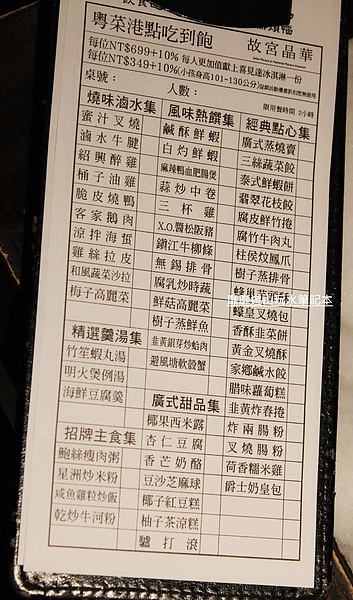 粵菜港點吃到飽
故宮晶華
每位NT$699+10% 每人更加值獻上喜見達冰淇淋一份
每位NT$349+10%(小孩身高101~130公分)
桌號：
人數：
限用餐時間 2小時
燒味滷水集
蜜汁叉燒
滷水牛腱
紹興醉雞
柚子油雞
脆皮燒鴨
客家鵝肉
涼拌海蜇
雞絲拉皮
和風蔬菜沙拉
梅子高麗菜
精選羹湯集
竹笙蝦丸湯
明火煲例湯
海鮮豆腐羹
招牌主食集
鮑絲瘦肉粥
星洲炒米粉
咸魚雞粒炒飯
乾炒牛河粉
風味熱饌集
鹹酥鮮蝦
白灼鮮蝦
麻辣鴨血肥腸煲
蒜炒中卷
三杯雞
X.O.醬松阪豬
鎮江牛柳條
無錫排骨
腐乳炒時蔬
鮮菇高麗菜
樹子蒸鮮魚
韭黃銀芽炒蛤肉
避風塘軟殼蟹
廣式甜品集
椰果西米露
杏仁豆腐
香芒奶酪
豆沙芝麻球
椰子紅豆糕
柚子茶涼糕
驢打滾
經典點心集
廣式蒸燒賣
三絲蔬菜餃
泰式鮮蝦餅
翡翠花枝餃
腐皮鮮竹捲
腐竹牛肉丸
柱侯炆鳳爪
樹子蒸排骨
蜂巢芋頭酥
蠔皇叉燒包
香酥韭菜餅
黃金叉燒酥
家鄉鹹水餃
腊味蘿蔔糕
韭黃炸春捲
炸兩腸粉
叉燒腸粉
荷香糯米雞
爵士奶皇包